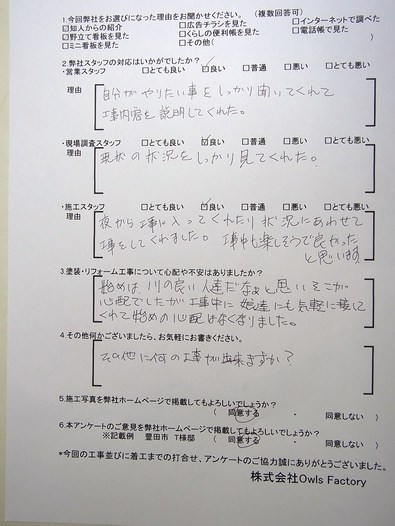 1.今回弊社をお選びになった理由をお聞かせください。（複数回答可）
☑知人からの紹介 □広告チラシを見た □インターネットで調べた
☑野立て看板を見た □くらしの便利帳を見た □電話帳で見た
□ミニ看板を見た □その他( )
2.弊社スタッフの対応はいかがでしたか？
・営業スタッフ □とても良い ☑良い □普通 □悪い □とても悪い
理由 自分がやりたい事をしっかり聞いてくれて
工事内容を説明してくれた。
・現場調査スタッフ □とても良い ☑良い □普通 □悪い □とても悪い
理由 現状の状況をしっかり見てくれた。
・施工スタッフ □とても良い ☑良い □普通 □悪い □とても悪い
理由 夜から工事に入ってくれたり状況にあわせて
工事をしてくれました。工事中も楽しそうで良かった
と思います
3.塗装・リフォーム工事について心配や不安はありましたか？
始めは、川の良い人達だなぁと思いそこが
心配でしたが工事中に娘達にも気軽に接して
くれて始めの心配はなくなりました。
4.その他何かございましたら、お気軽にお書きください。
その他に何の工事が出来ますか？
5.施工写真を弊社ホームページで掲載してもよろしいでしょうか？
( 同意する ・ 同意しない )
6.本アンケートのご意見を弊社ホームページで掲載してもよろしいでしょうか？
※記載例 豊田市 T様邸 ( 同意する ・ 同意しない )
*今回の工事並びに着工までの打合せ、アンケートのご協力誠にありがとうございました。
株式会社Owls Factory